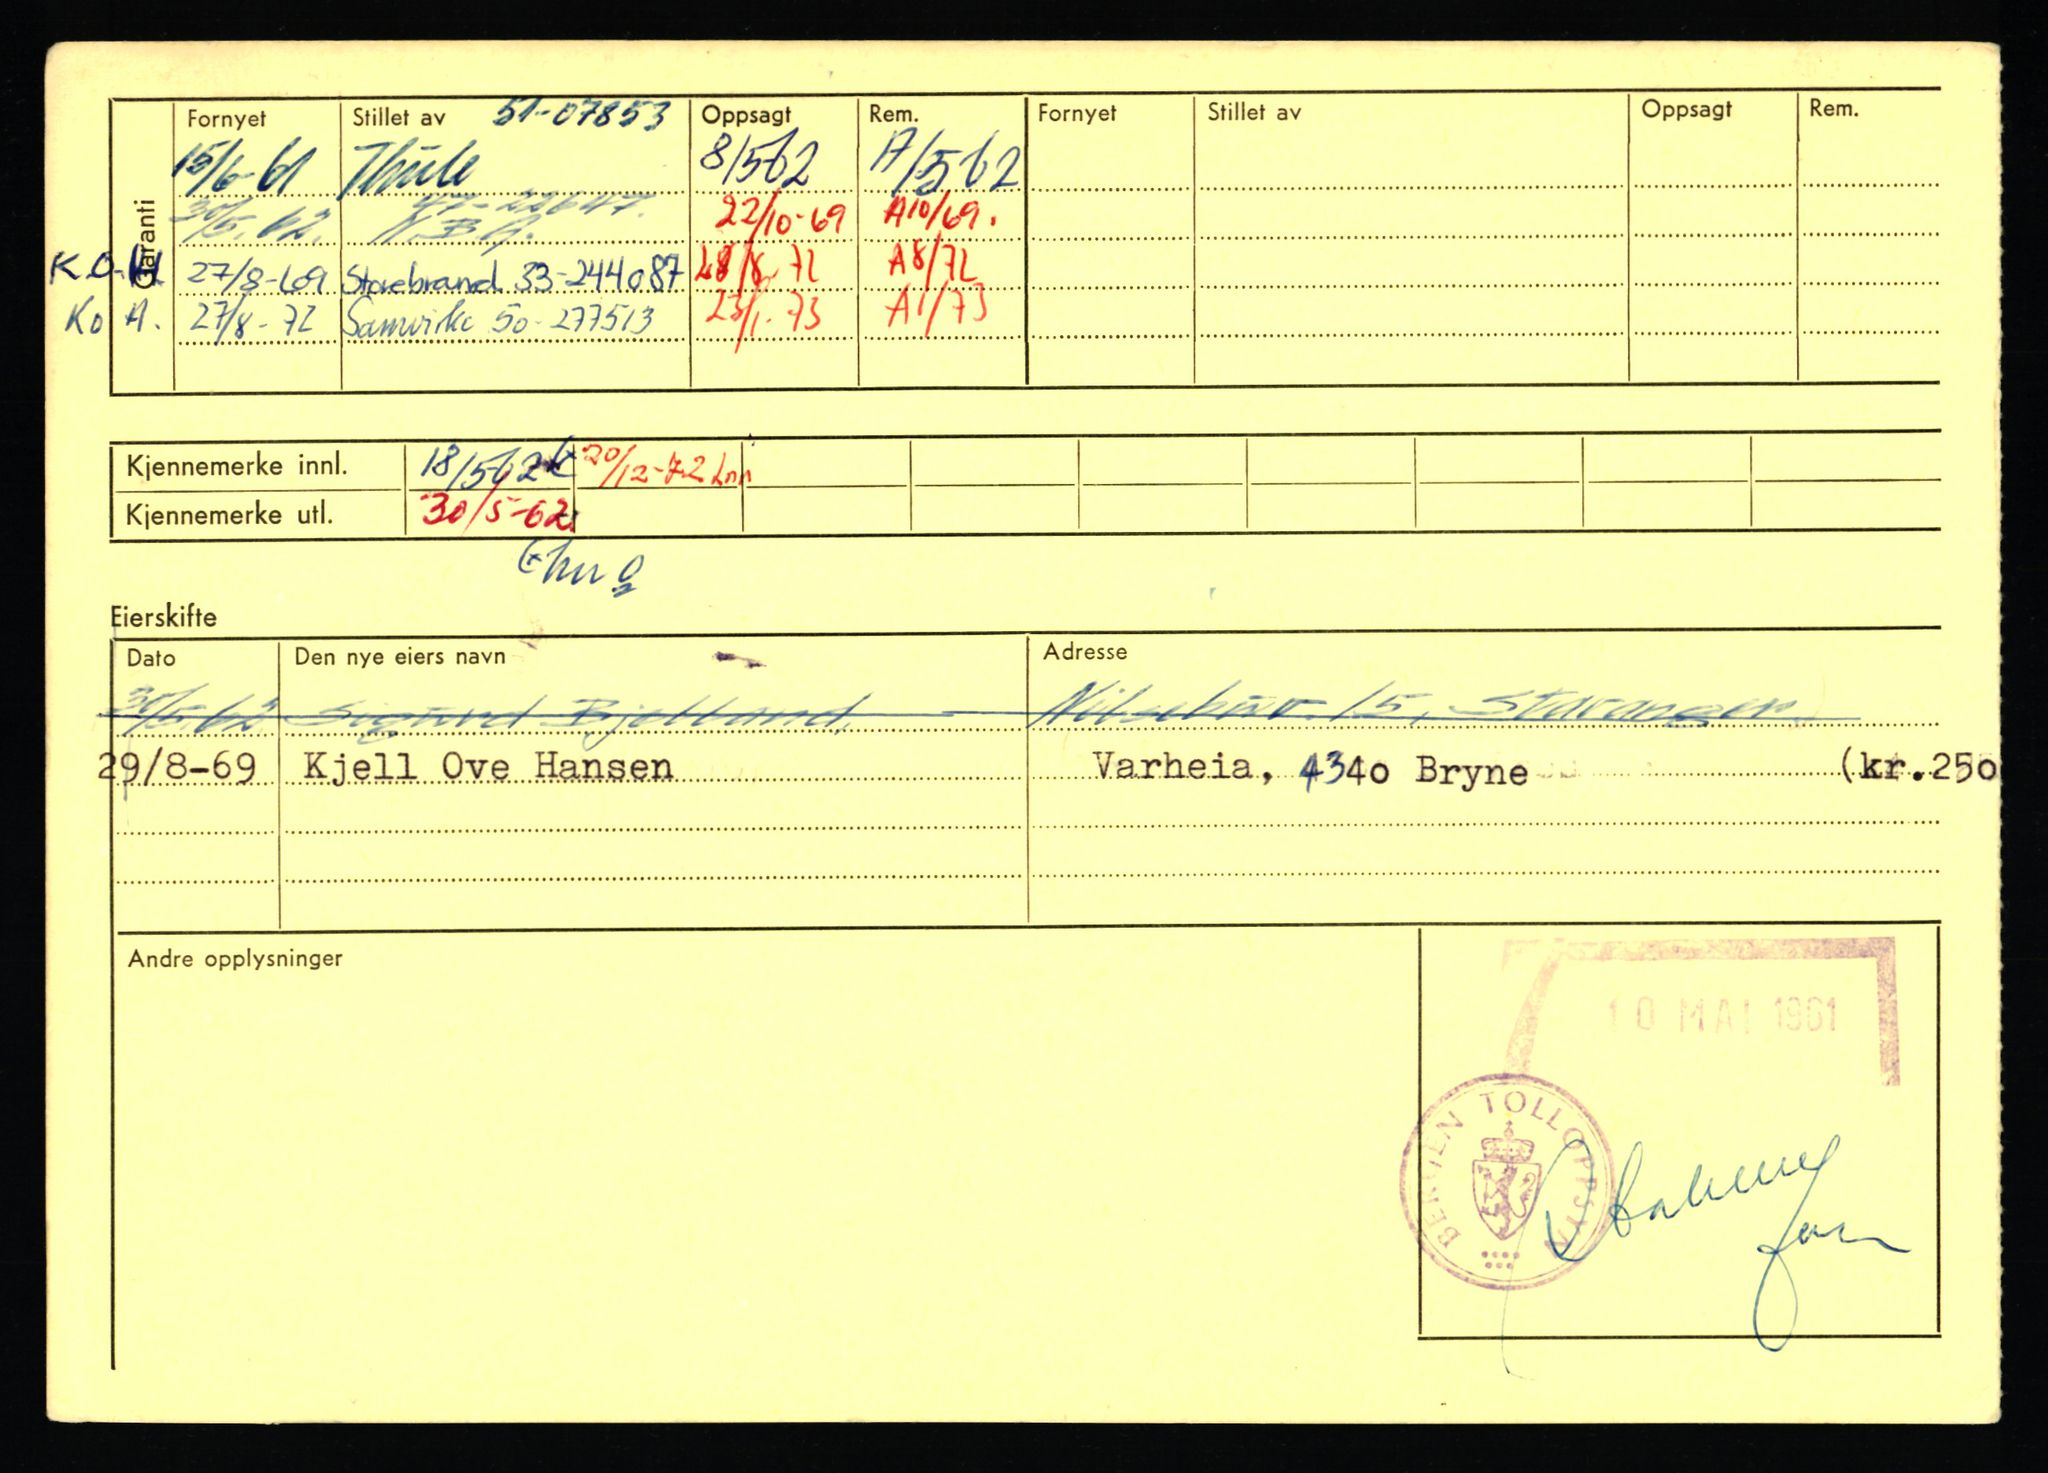 Garanti
Fornyet Stillet av 51-07853 Oppsagt Rem. Fornyet Stillet av Oppsagt Rem.
15/6-61 Thule 8/562 A/562
30/5.62. 47-22647. N.B.G. 22/10-69 A10/69.
K.O.H 27/8-69 Storebrand 33-244087 28/8-72 A8/72
Ko A. 27/8-72 Samvirke 50-277513 23/1-73 A1/73
Kjennemerke innl. 18/562 20/12-72
Kjennemerke utl. 30/5-62
Eierskifte
Dato Den nye eiers navn Adresse
30/5.62 Sigurd Bjelland. 15, Stavanger.
29/8-69 Kjell Ove Hansen Varheia, 4340 Bryne (kr.250
Andre opplysninger
10 MAI 1961
BERGEN TOLLOPPSYN